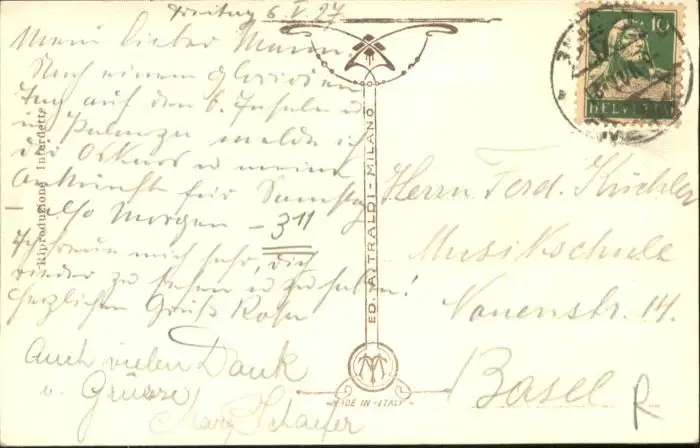 Freitag 6. V. 27
Mein lieber Mann
Nach einem
Tag auf den b. Inseln u
in Palanza melde ich
dir Oskars u meine
Ankunft für Samstag
– also Morgen – 3 11
Ich freue mich sehr, dich
wieder zu sehen u zu haben!
Herzlichen Gruß Rosa
Auch vielen Dank
u. Grüsse
Schaefer
Riproduzione Interdetta
ED. A. TRALDI - MILANO
MADE IN ITALY
10
HELVETIA
Herrn Ferd. Küchler
Musikschule
Nonenstr. 14.
Basel
R